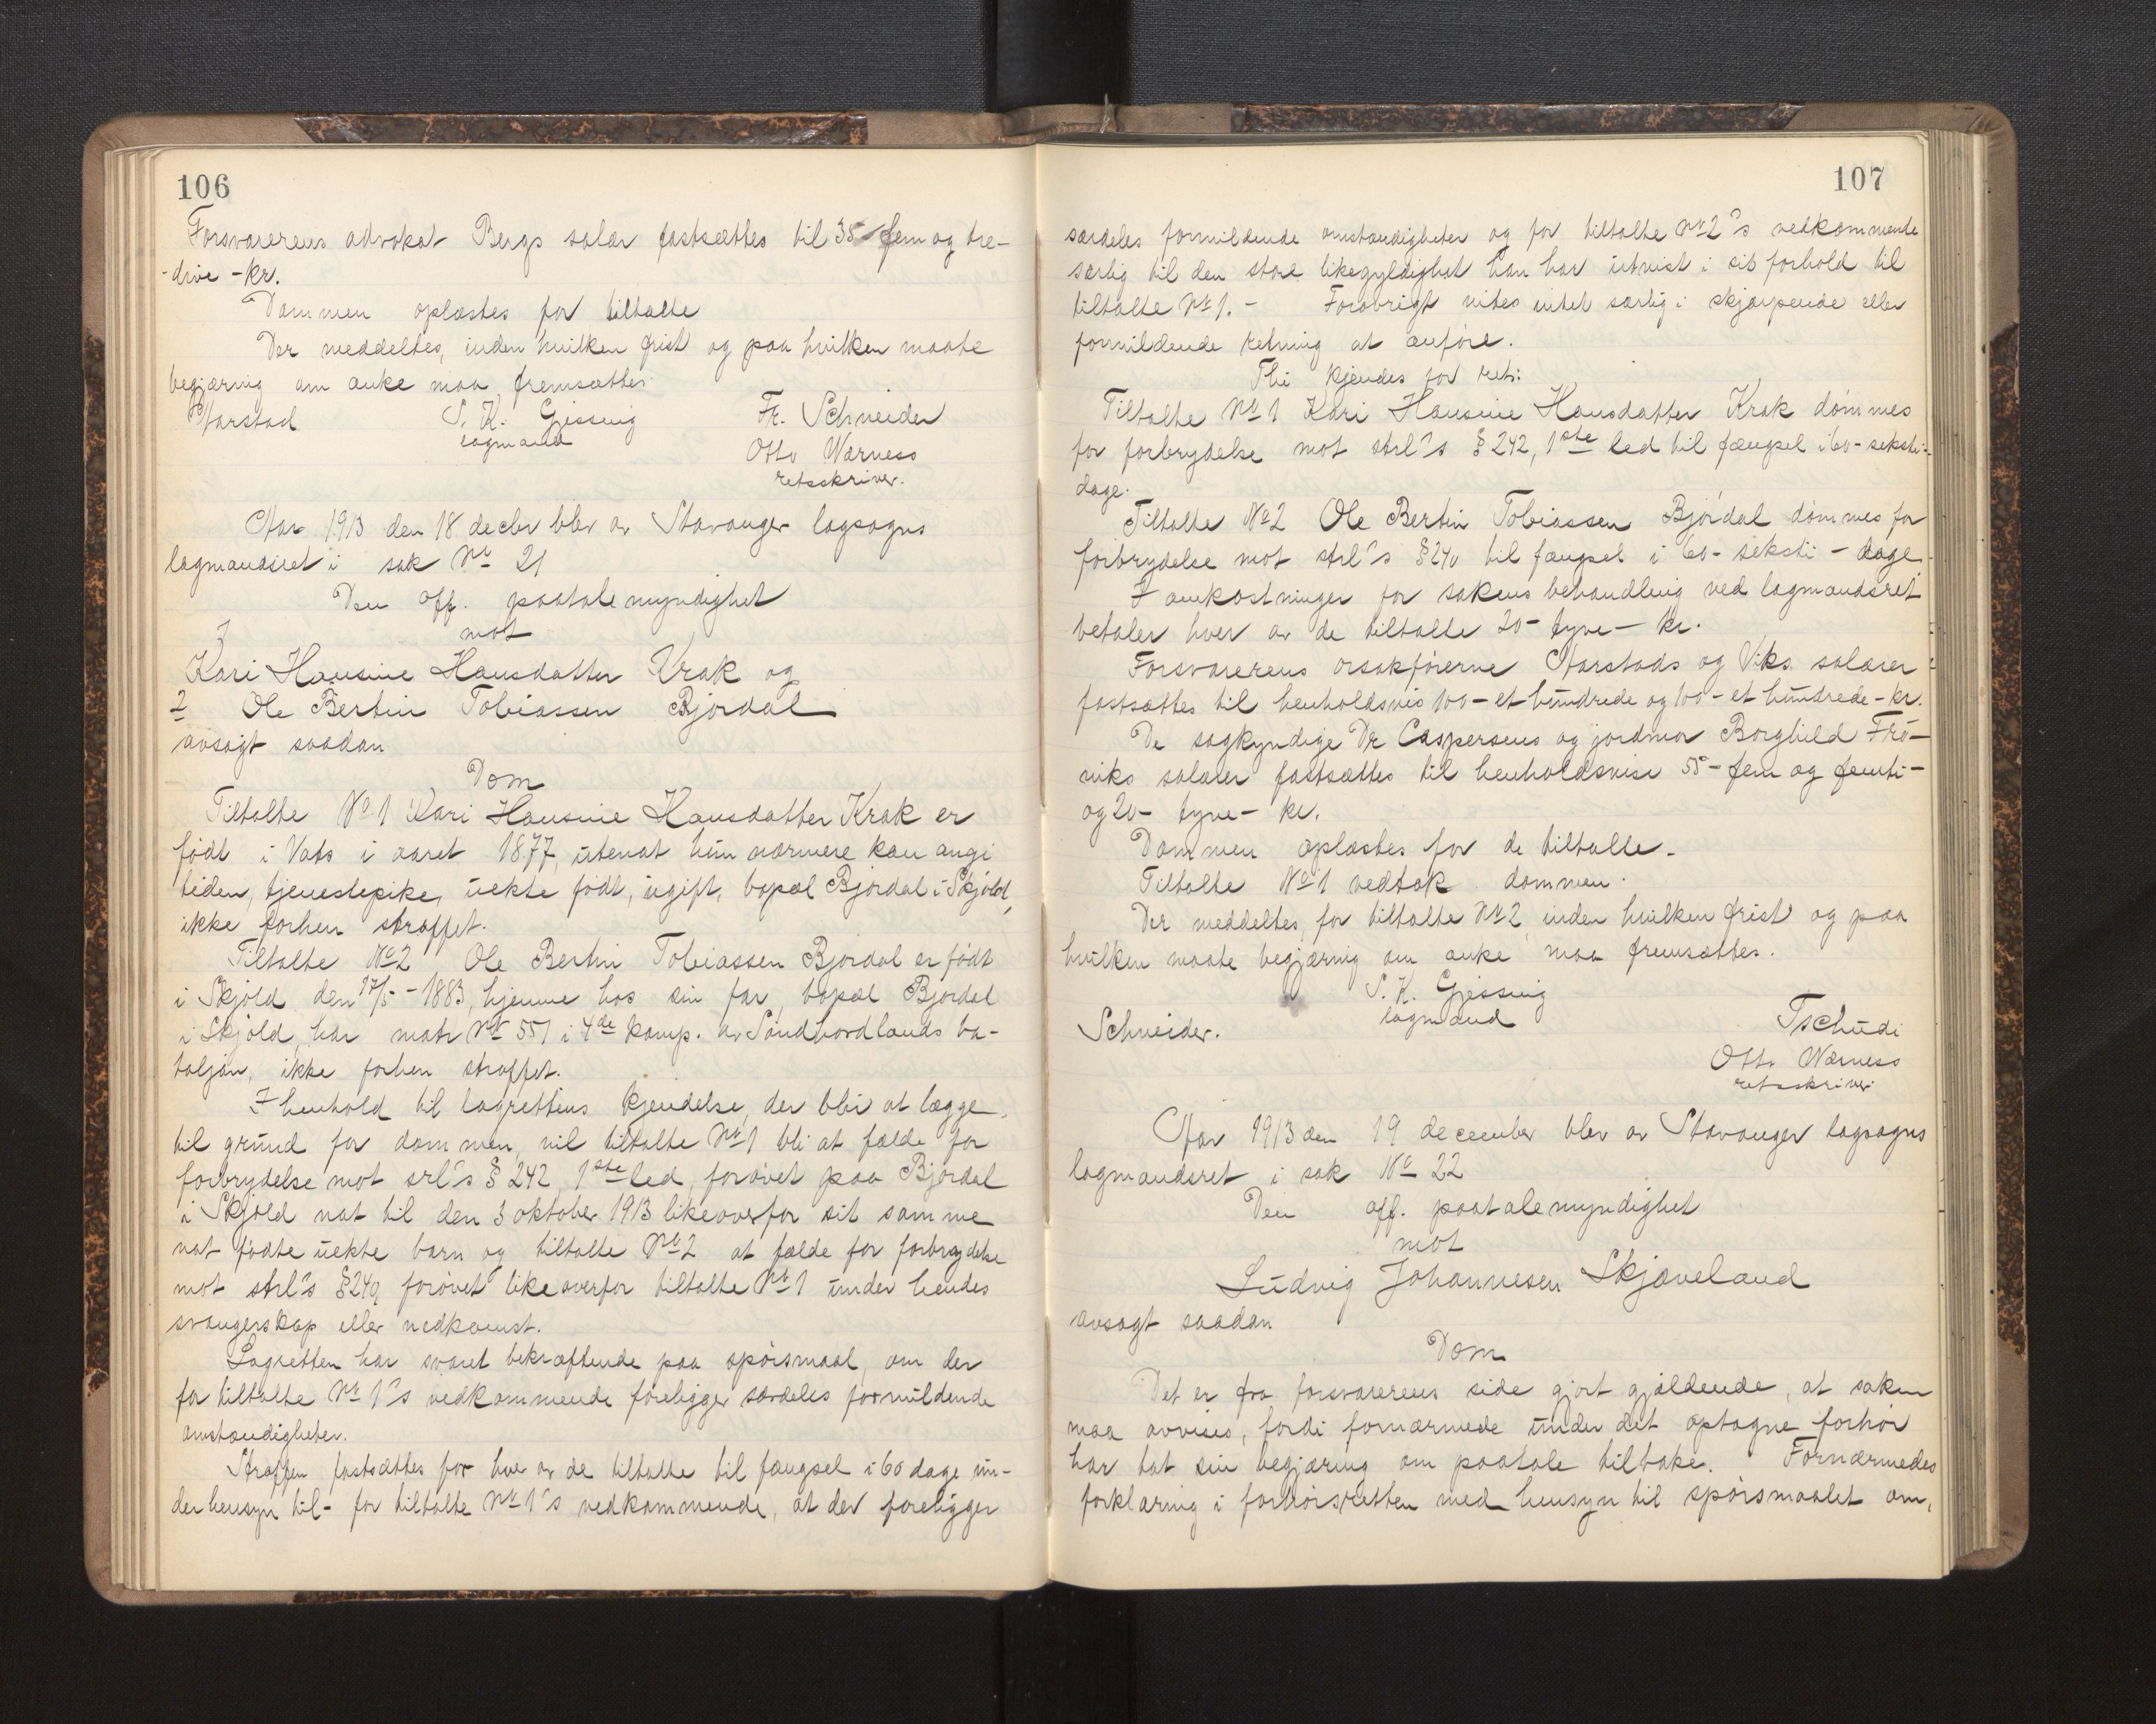 106
Forsvarerens advokat Bergs salær fastsættes til 35 fem og tre-
-dive - kr.
Dommen oplæstes for tiltalte
Der meddeltes, inden hvilken frist og paa hvilken maate
begjæring om anke maa fremsættes.
Aarstad S. K. Gjessing Fr. Schneider
lagmand Otto Wærness
retsskriver.
Aar 1913 den 18 decbr blev av Stavanger lagsogns
lagmandsret i sak No 21
Den off. paatalemyndighet
1 mot
Kari Hansine Hansdatter Krak og
2 Ole Bertin Tobiassen Bjordal
avsagt saadan
Dom
Tiltalte No 1 Kari Hansine Hansdatter Krak er
født i Vats i aaret 1877, utenat hun nærmere kan angi
tiden, tjenestepike, uekte født, ugift, bopæl Bjordal i Skjold,
ikke forhen straffet.
Tiltalte No 2 Ole Bertin Tobiassen Bjordal er født
i Skjold den 17/5 - 1883, hjemme hos sin far, bopæl Bjordal
i Skjold, har matr No 551 i 4de komp. av Søndhordlands ba-
taljon, ikke forhen straffet.
I henhold til lagrettens kjendelse, der blir at lægge
til grund for dommen, vil tiltalte No 1 bli at fælde for
forbrydelse mot srl's § 242, 1ste led, forøvet paa Bjordal
i Skjold nat til den 3 oktober 1913 likeoverfor sit samme
nat fødte uekte barn og tiltalte No 2 at fælde for forbrydelse
mot strl's § 240 forøvet likeoverfor tiltalte No 1 under hendes
svangerskap eller nedkomst.
Lagretten har svaret bekræftende paa spørsmaal, om der
for tiltalte No 1's vedkommende foreligger særdeles formildende
omstændigheter.
Straffen fastsættes for hver av de tiltalte til fængsel i 60 dage un-
der hensyn til - for tiltalte No 1's vedkommende, at der foreligger
107
særdeles formildende omstændigheter og for tiltalte No 2's vedkommende
særlig til den store likegyldighet han har utvist i sit forhold til
tiltalte No 1. - Forøvrigt vites intet særlig i skjærpende eller
formildende retning at anføre.
Thi kjendes for ret:
Tiltalte No 1 Kari Hansine Hansdatter Krak dømmes
for forbrydelse mot strl's § 242, 1ste led til fængsel i 60 - seksti -
dage.
Tiltalte No 2 Ole Bertin Tobiassen Bjordal dømmes for
forbrydelse mot strl's § 240 til fængsel i 60 - seksti - dage
I omkostninger for sakens behandling ved lagmandsret
betaler hver av de tiltalte 20 - tyve - kr.
Forsvarerens orsakførerne Aarstads og Viks salærer
fastsættes til henholdsvis 100 - et hundrede og 100 - et hundrede - kr.
De sagkyndige Dr Caspersens og jordmor Borghild Frö-
viks salærer fastsættes til henholdsvise 55 - fem og femti -
og 20 - tyve - kr.
Dommen oplæstes for de tiltalte.
Tiltalte No 1 vedtok dommen.
Der meddeltes, for tiltalte No 2, inden hvilken frist og paa
hvilken maate begjæring om anke maa fremsættes.
S. K. Gjessing
Schneider. lagmand Tschudi
Otto Wærness
retsskriver.
Aar 1913 den 19 december blev av Stavanger lagsogns
lagmandsret i sak No 22
Den off. paatalemyndighet
mot
Ludvig Johannesen Skjæveland
avsagt saadan
Dom
Det er fra forsvarerens side gjort gjældende, at saken
maa avvises, fordi fornærmede under det optagne forhør
har tat sin begjæring om paatale tilbake. Fornærmedes
forklaring i forhørsretten med hensyn til spørsmaalet om,